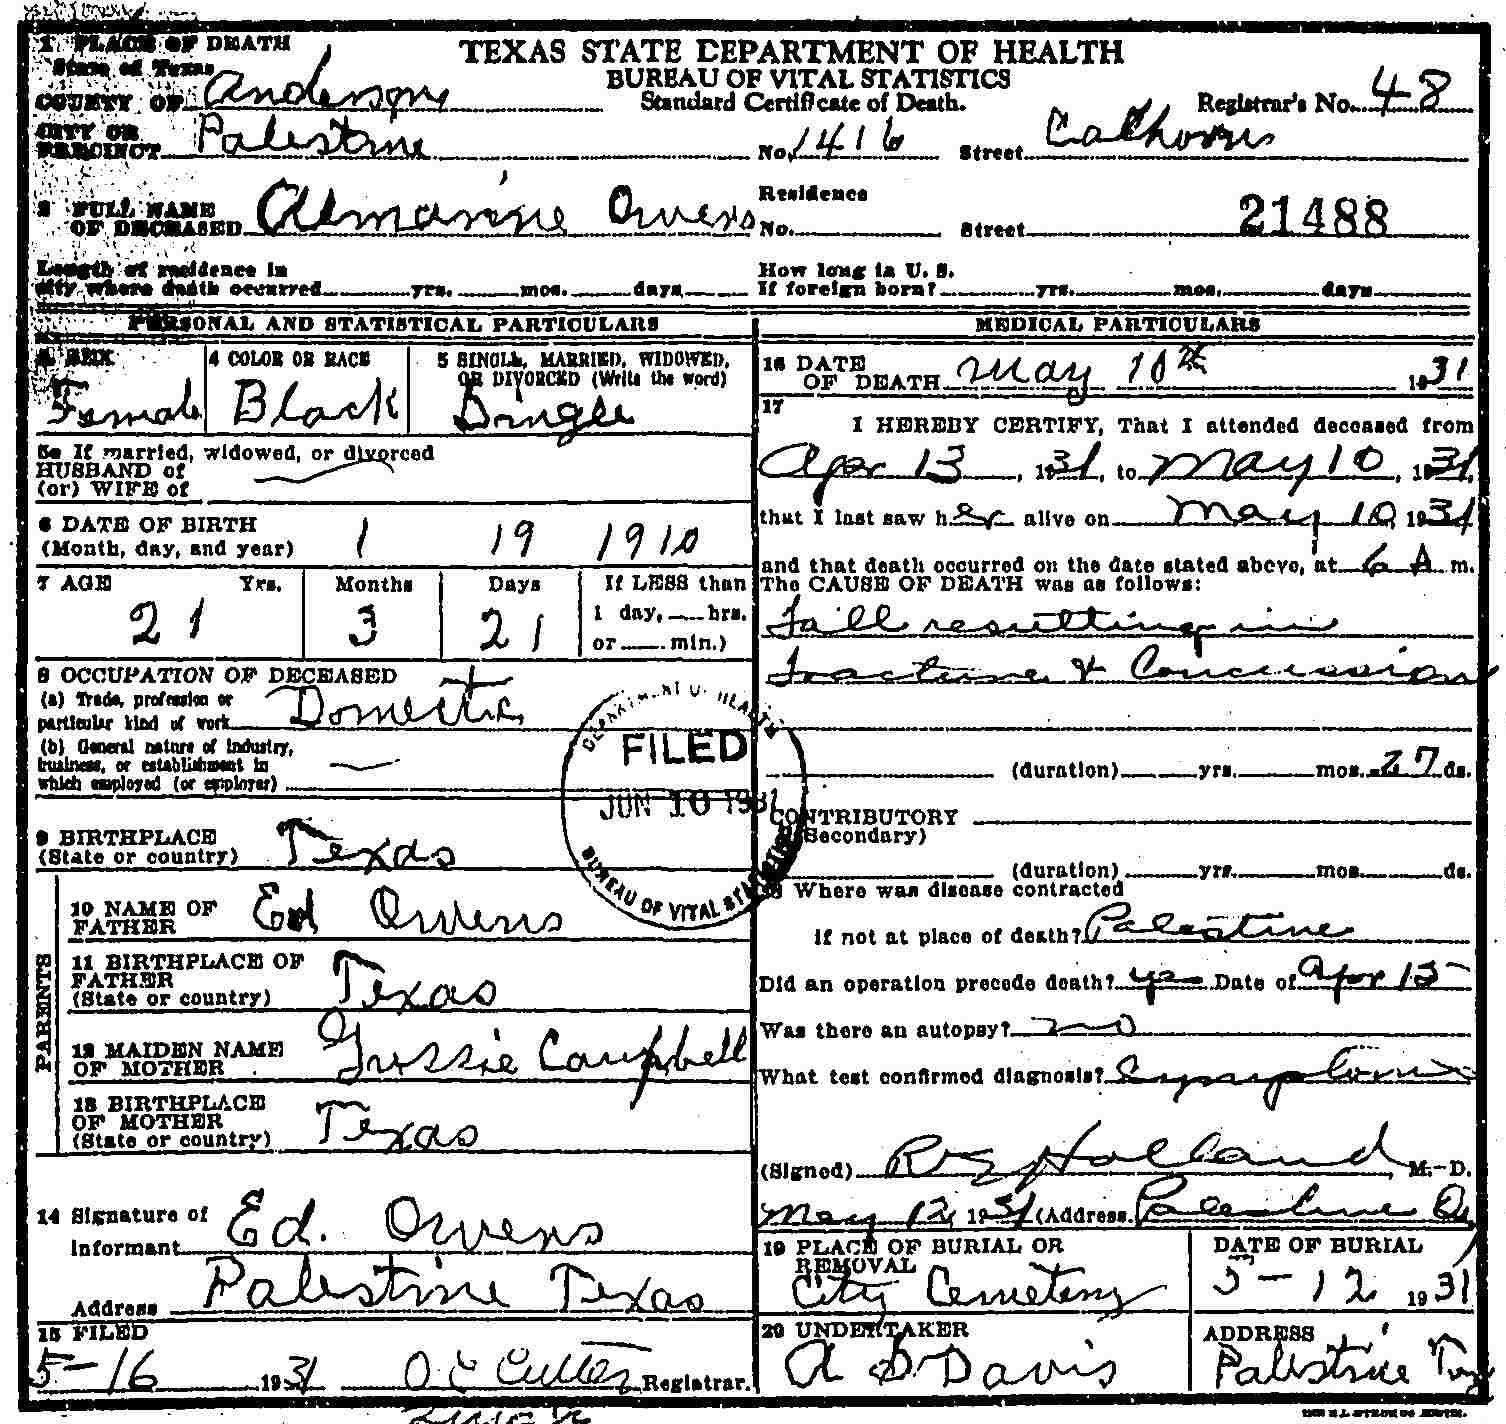 1 PLACE OF DEATH
TEXAS STATE DEPARTMENT OF HEALTH
State of Texas
BUREAU OF VITAL STATISTICS
COUNTY OF Anderson
Standard Certificate of Death.
Registrar's No. 48
CITY OR PRECINCT Palestine No. 1416 Street Calhoun
2 FULL NAME OF DECEASED Almarine Owens
Residence No. Street 21488
Length of residence in city where death occurred yrs. mos. days
How long in U. S. If foreign born? yrs. mos. days
PERSONAL AND STATISTICAL PARTICULARS
3 SEX Female
4 COLOR OR RACE Black
5 SINGLE, MARRIED, WIDOWED, OR DIVORCED (Write the word) Single
5a If married, widowed, or divorced
HUSBAND of
(or) WIFE of
6 DATE OF BIRTH
(Month, day, and year) 1 19 1910
7 AGE Yrs. Months Days If LESS than
21 3 21 1 day, hrs.
or min.)
8 OCCUPATION OF DECEASED
(a) Trade, profession or
particular kind of work Domestic
(b) General nature of industry,
business, or establishment in
which employed (or employer)
9 BIRTHPLACE
(State or country) Texas
PARENTS
10 NAME OF
FATHER Ed Owens
11 BIRTHPLACE OF
FATHER
(State or country) Texas
12 MAIDEN NAME
OF MOTHER Gussie Campbell
13 BIRTHPLACE
OF MOTHER
(State or country) Texas
14 Signature of
Informant Ed. Owens
Address Palestine Texas
15 FILED
5-16 1931 O C Cutter Registrar.
DEPARTMENT OF HEALTH
FILED
JUN 10 1931
BUREAU OF VITAL STATISTICS
MEDICAL PARTICULARS
16 DATE
OF DEATH May 10th 1931
17
I HEREBY CERTIFY, That I attended deceased from
Apr 13, 1931, to May 10, 1931,
that I last saw her alive on May 10, 1931
and that death occurred on the date stated above, at 6 A m.
The CAUSE OF DEATH was as follows:
Fall resulting in
Fracture & Concussion
(duration) yrs. mos. 27 ds.
CONTRIBUTORY
(Secondary)
(duration) yrs. mos. ds.
18 Where was disease contracted
if not at place of death? Palestine
Did an operation precede death? yes Date of Apr 15
Was there an autopsy? no
What test confirmed diagnosis? Symptoms
(Signed) Holland, M.-D.
May 12, 1931 (Address Palestine
19 PLACE OF BURIAL OR
REMOVAL
City Cemetery
DATE OF BURIAL
5-12 1931
20 UNDERTAKER
A D Davis
ADDRESS
Palestine Tex